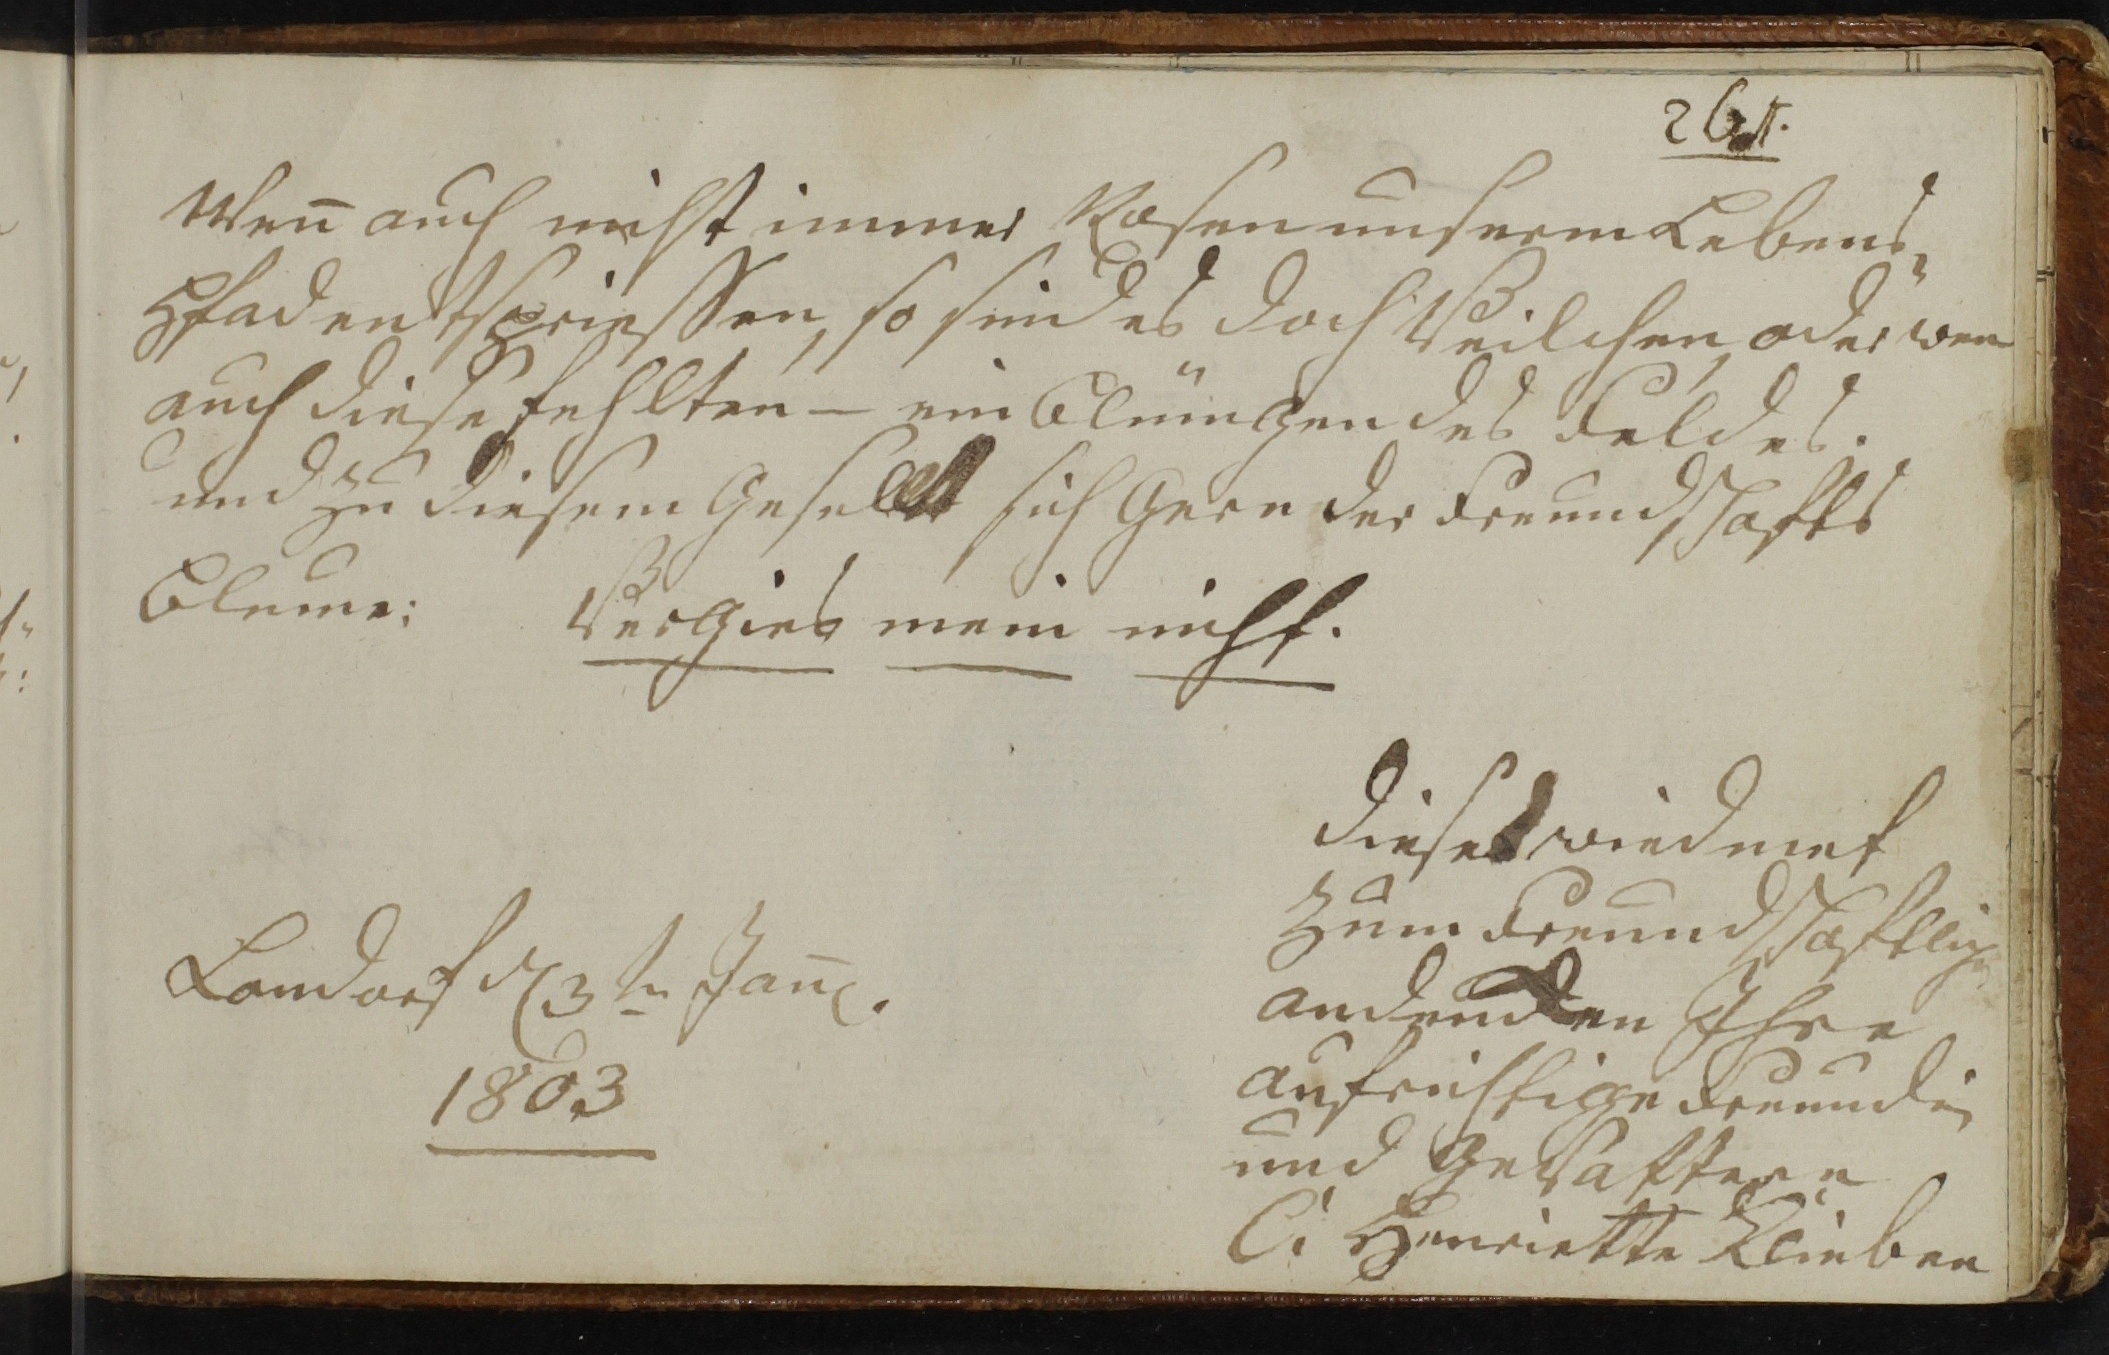 261.
Wen̄ auch nicht immer Rosen unserm Lebens-
Pfad entspriessen, so sind es doch Veilchen, oder wen
auch diese fehlten – ein Blümgen des Feldes.
und zu diesem gesellt sich Gern der Freundschafts
Blume: Vergies mein nicht.
Dieses wiedmet
zum Freundschaftlig
andencken Ihre
aufrichtige Freundin
und Gevattern
C: Henriette Klieber
Londorf d 3tn Jan̄.
1803